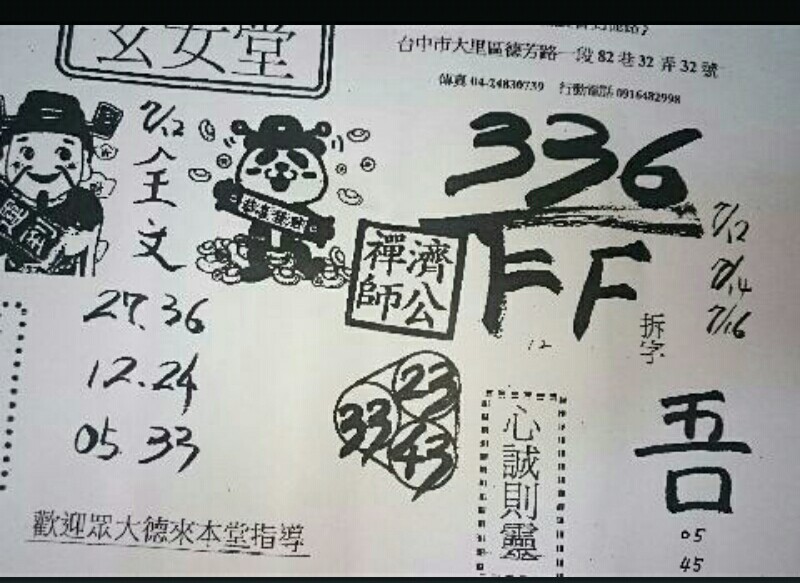 玄女堂
台中市大里區德芳路一段82巷32弄32號
傳真 04-24830739 行動電話 0916482998
7/12
全文
恭喜發財
336
FF
7/12
7/14
7/16
濟公禪師
拆字
12
27.36
12.24
05 33
23
33
43
心誠則靈
五口
05
45
歡迎眾大德來本堂指導